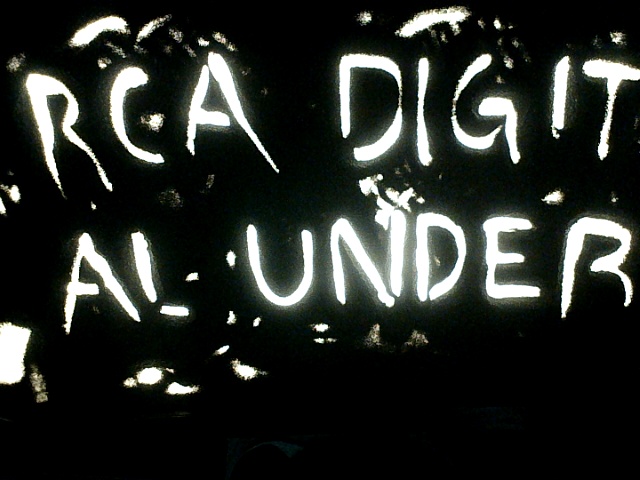 RCA DIGIT
AL UNDER